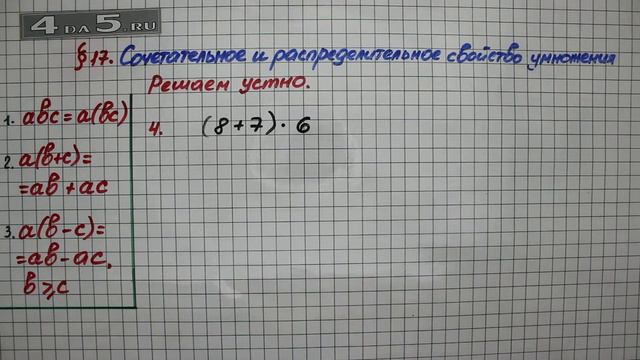 4DA5.RU
§17. Сочетательное и распределительное свойство умножения
Решаем устно.
1. abc = a(bc)
2. a(b+c)=
=ab+ac
3. a(b-c)=
=ab-ac,
b⩾c
4. (8+7)·6